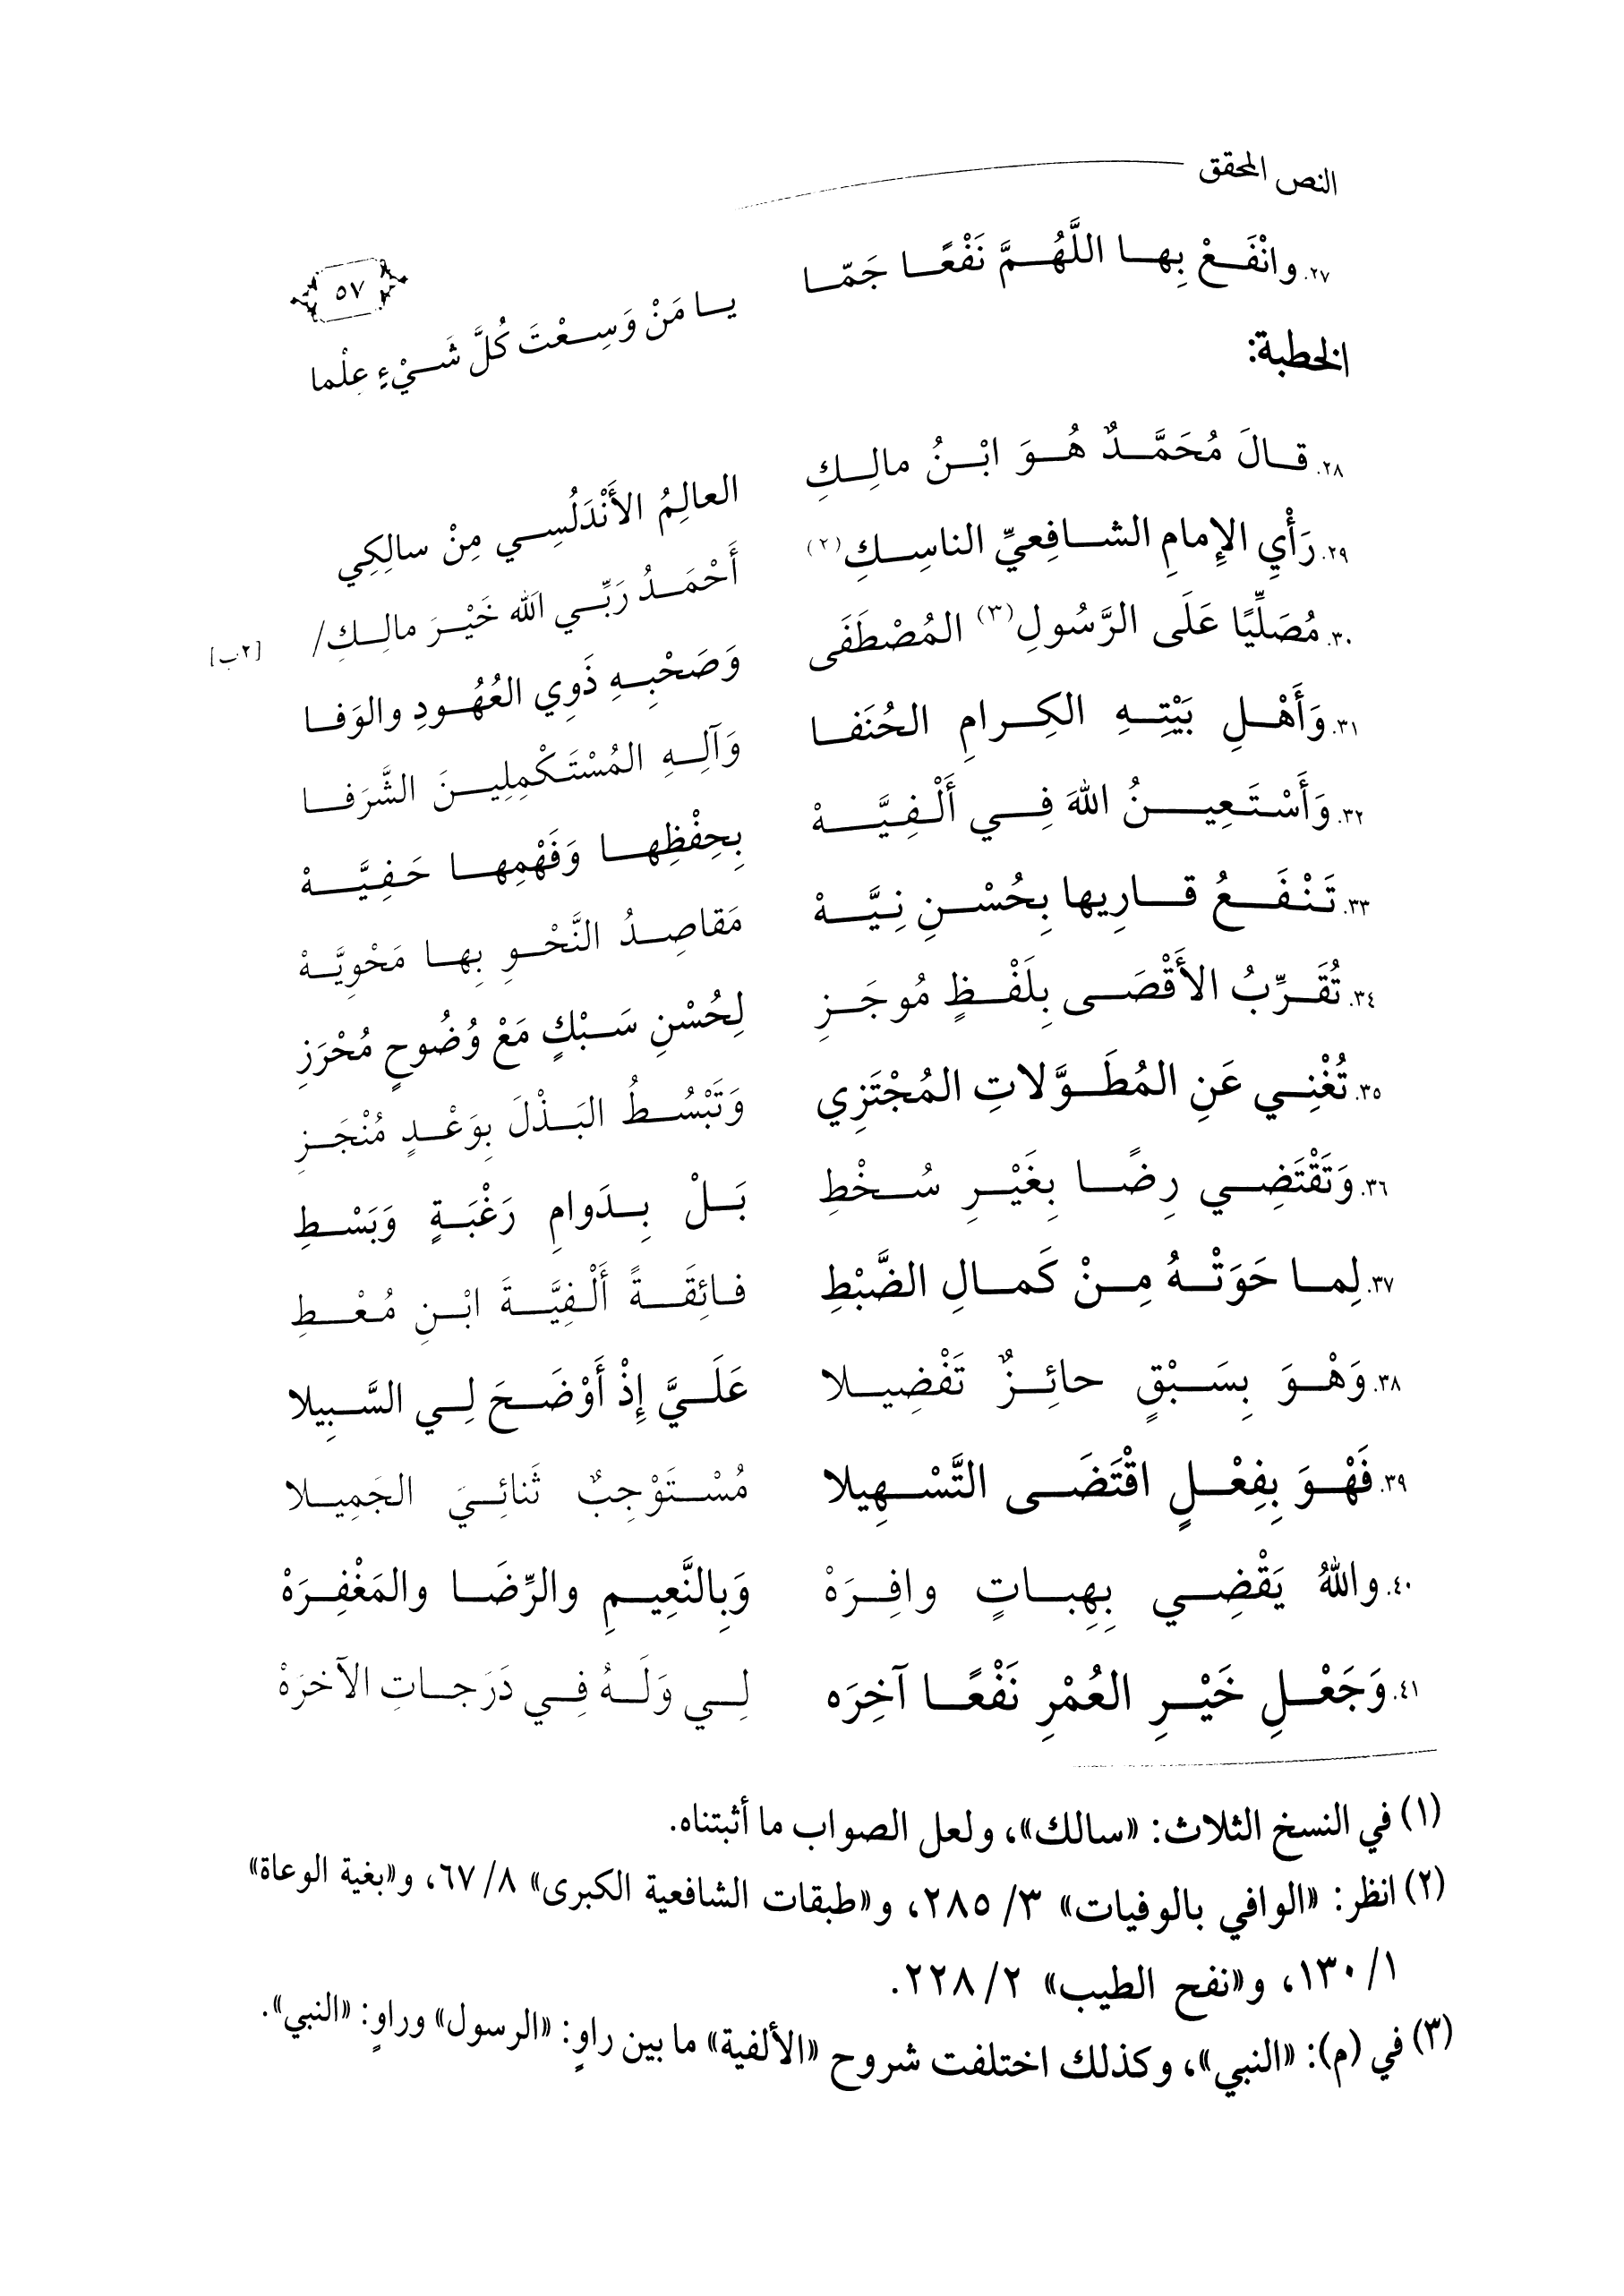 النص المحقق
٥٧
٢٧. وانْفَعْ بِها اللَّهُمَّ نَفْعًا جَمّا يا مَنْ وَسِعْتَ كُلَّ شَيْءٍ عِلْما
الخطبة:
٢٨. قالَ مُحَمَّدٌ هُوَ ابْنُ مالِكِ العالِمُ الأَنْدَلُسِي مِنْ سالِكِي
٢٩. رَأْيِ الإِمامِ الشافِعيِّ الناسِكِ(٢) أَحْمَدُ رَبِّي الله خَيْرَ مالِكِ/ [٢ب]
٣٠. مُصَلِّيًا عَلَى الرَّسُولِ(٣) المُصْطَفَى وَصَحْبِهِ ذَوِي العُهُودِ والوَفا
٣١. وَأَهْلِ بَيْتِهِ الكِرامِ الحُنَفا وَآلِهِ المُسْتَكْمِلِينَ الشَّرَفا
٣٢. وَأَسْتَعِينُ اللهَ فِي أَلْفِيَّهْ بِحِفْظِها وَفَهْمِها حَفِيَّهْ
٣٣. تَنْفَعُ قارِيها بِحُسْنِ نِيَّهْ مَقاصِدُ النَّحْوِ بِها مَحْوِيَّهْ
٣٤. تُقَرِّبُ الأَقْصَى بِلَفْظٍ مُوجَزِ لِحُسْنِ سَبْكٍ مَعْ وُضُوحٍ مُحْرَزِ
٣٥. تُغْنِي عَنِ المُطَوَّلاتِ المُجْتَزِي وَتَبْسُطُ البَذْلَ بِوَعْدٍ مُنْجَزِ
٣٦. وَتَقْتَضِي رِضًا بِغَيْرِ سُخْطِ بَلْ بِدَوامِ رَغْبَةٍ وَبَسْطِ
٣٧. لِما حَوَتْهُ مِنْ كَمالِ الضَّبْطِ فائِقَةً أَلْفِيَّةَ ابْنِ مُعْطِ
٣٨. وَهْوَ بِسَبْقٍ حائِزٌ تَفْضِيلا عَلَيَّ إِذْ أَوْضَحَ لِي السَّبِيلا
٣٩. فَهْوَ بِفِعْلٍ اقْتَضَى التَّسْهِيلا مُسْتَوْجِبٌ ثَنائِيَ الجَمِيلا
٤٠. واللهُ يَقْضِي بِهِباتٍ وافِرَهْ وَبِالنَّعِيمِ والرِّضَا والمَغْفِرَهْ
٤١. وَجَعْلِ خَيْرِ العُمْرِ نَفْعًا آخِرَه لِي وَلَهُ فِي دَرَجاتِ الآخرَهْ
(١) في النسخ الثلاث: «سالك»، ولعل الصواب ما أثبتناه.
(٢) انظر: «الوافي بالوفيات» ٣/ ٢٨٥، و«طبقات الشافعية الكبرى» ٨/ ٦٧، و«بغية الوعاة»
١/ ١٣٠، و«نفح الطيب» ٢/ ٢٢٨.
(٣) في (م): «النبي»، وكذلك اختلفت شروح «الألفية» ما بين راوٍ: «الرسول» وراوٍ: «النبي».